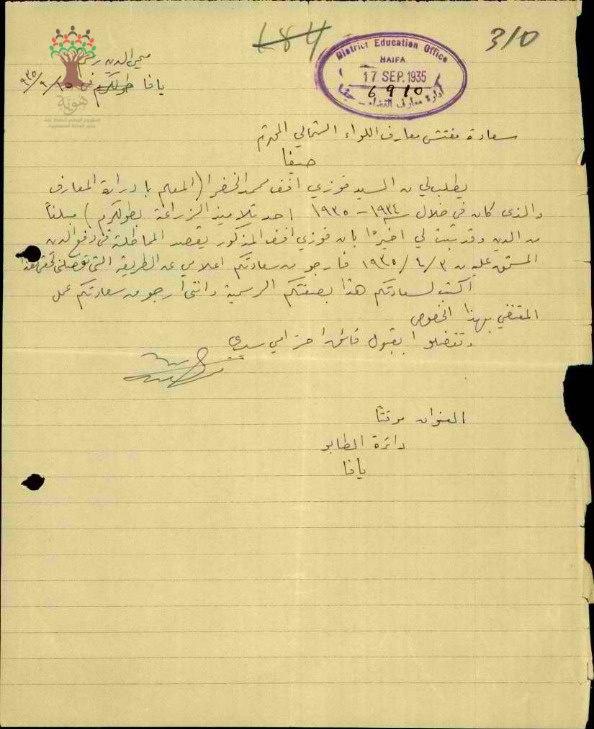 184
310
District Education Office
HAIFA
17 SEP. 1935
6910
محي الدين
يافا طولكرم في
سعادة مفتش معارف اللواء الشمالي المحترم
حيفا
يطلب لي من السيد فوزي افندي محمد الخضرا (المعلم بادارة المعارف
والذي كان في خلال سنة ١٩٣٤ - ١٩٣٥ احد تلاميذ الزراعة بطولكرم) مبلغاً
من الدين وقد ثبت لي اخيراً بان فوزي افندي المذكور يقصد المماطلة في دفع الدين
المستحق عليه من ١٩٣٥/٤/٣ فارجو من سعادتكم اعلامي عن الطريقة التي
أكتب لسعادتكم هذا بصفتكم الرسمية وانني أرجو من سعادتكم عمل
المقتضي بهذا الخصوص
وتفضلوا بقبول فائق احترامي سيدي
العنوان موقتاً
دائرة الطابو
يافا
هوية